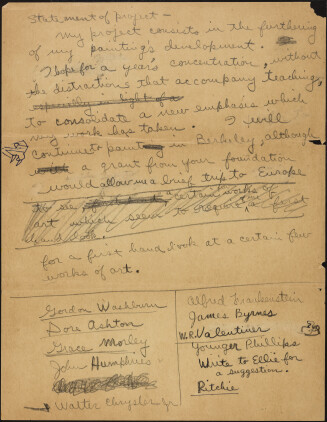 Statement of project —
My project consists in the furthering
of my painting's development.
I hope for a year's concentration, without
the distractions that accompany teaching,
especially in light of a
to consolidate a new emphasis which
my work has taken. I will
continue to paint in Berkeley, although
a grant from your foundation
would allow me a brief trip to Europe
to see certain works of
art which seem to require a first
hand look.
for a first hand look at a certain few
works of art.
Gordon Washburn
Dore Ashton
Grace Morley
John Humphries
Walter Chrysler Jr
Alfred Frankenstein
James Byrnes
W.R. Valentiner
Younger Phillips
Write to Ellie for
a suggestion.
Ritchie